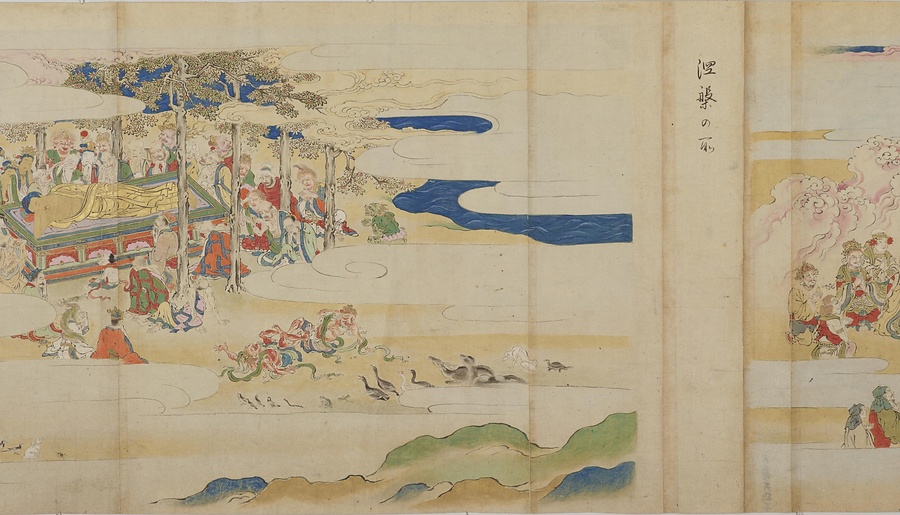 涅槃の所